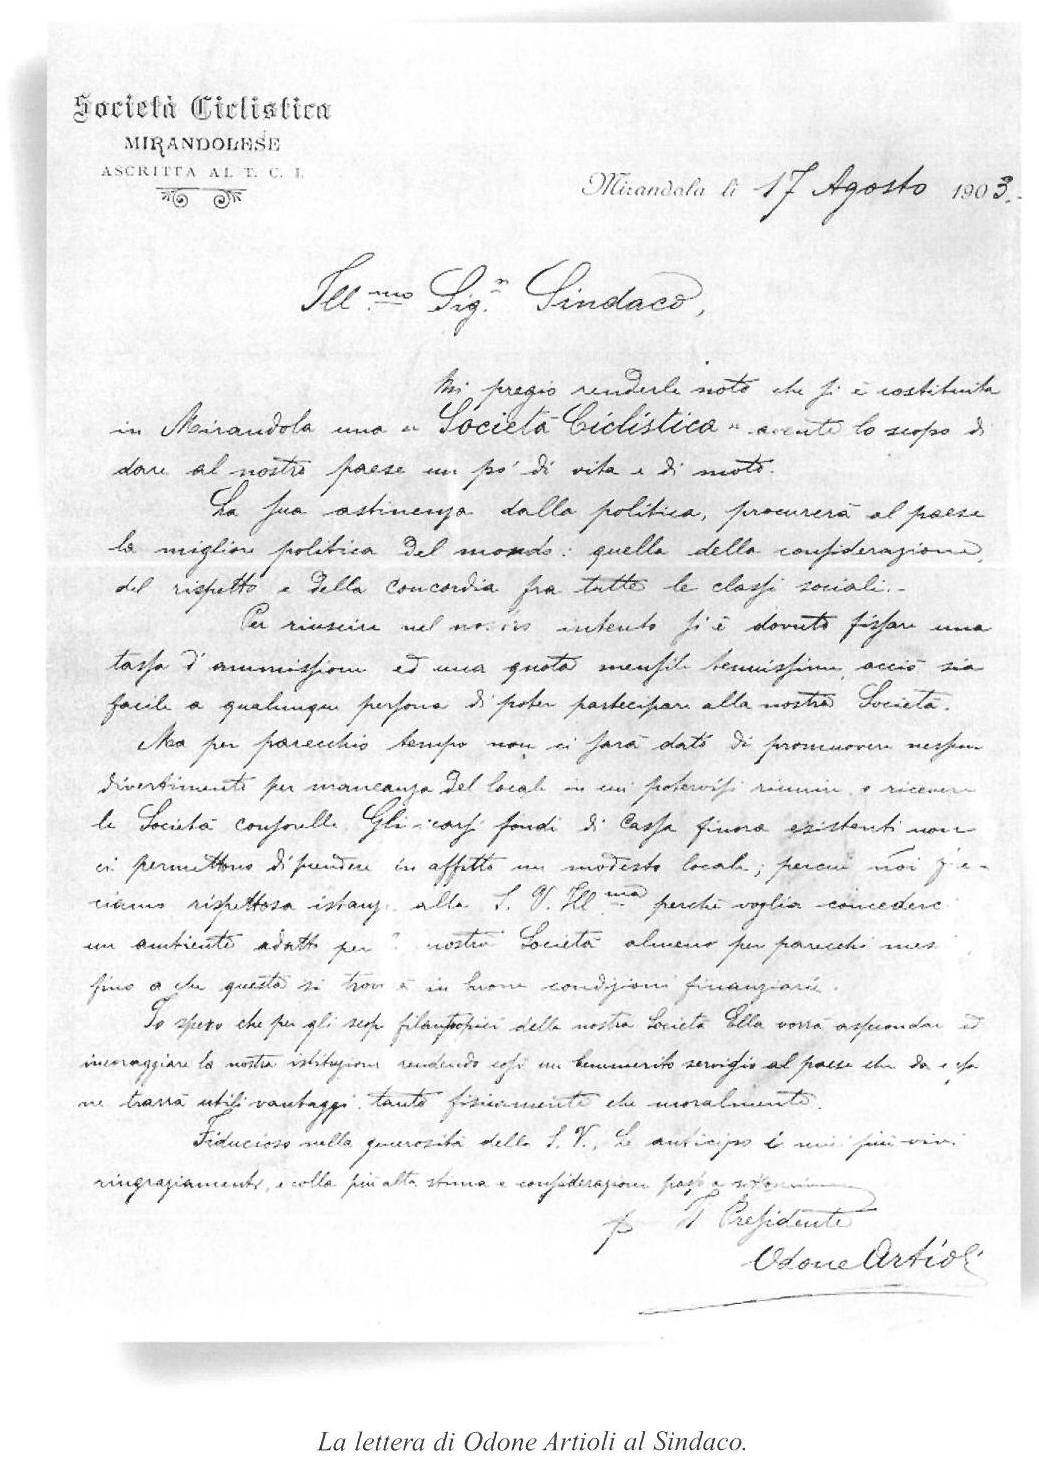 Società Ciclistica
MIRANDOLESE
ASCRITTA AL T. C. I.
Mirandola li 17 Agosto 1903.
Ill.mo Sig.r Sindaco,
Mi pregio renderle noto che si è costituita
in Mirandola una "Società Ciclistica" avente lo scopo di
dare al nostro paese un po' di vita e di moto.
La sua astinenza dalla politica, procurerà al paese
la migliore politica del mondo: quella della considerazione,
del rispetto e della concordia fra tutte le classi sociali.-
Per riuscire nel nostro intento si è dovuto fissare una
tassa d'ammissione ed una quota mensile tenuissima, acciò sia
facile a qualunque persona di poter partecipare alla nostra Società.
Ma per parecchio tempo non ci sarà dato di promuovere nessun
divertimento per mancanza del locale in cui potervisi riunire o ricevere
le Società consorelle. Gli scarsi fondi di Cassa finora esistenti non
ci permettono di prendere in affitto un modesto locale; perciò noi fac-
ciamo rispettosa istanza alla S. V. Ill.ma perchè voglia concederci
un ambiente adatto per la nostra Società almeno per parecchi mesi
fino a che questa si troverà in buone condizioni finanziarie.
Io spero che per gli scopi filantropici della nostra Società Ella vorrà assecondare ed
incoraggiare la nostra istituzione rendendo così un benemerito servigio al paese che da essa
ne trarrà utili vantaggi tanto fisicamente che moralmente.
Fiducioso nella generosità della S. V., Le anticipo i miei più vivi
ringraziamenti, e colla più alta stima e considerazione passo a sottoscrivermi
Il Presidente
Odone Artioli
La lettera di Odone Artioli al Sindaco.